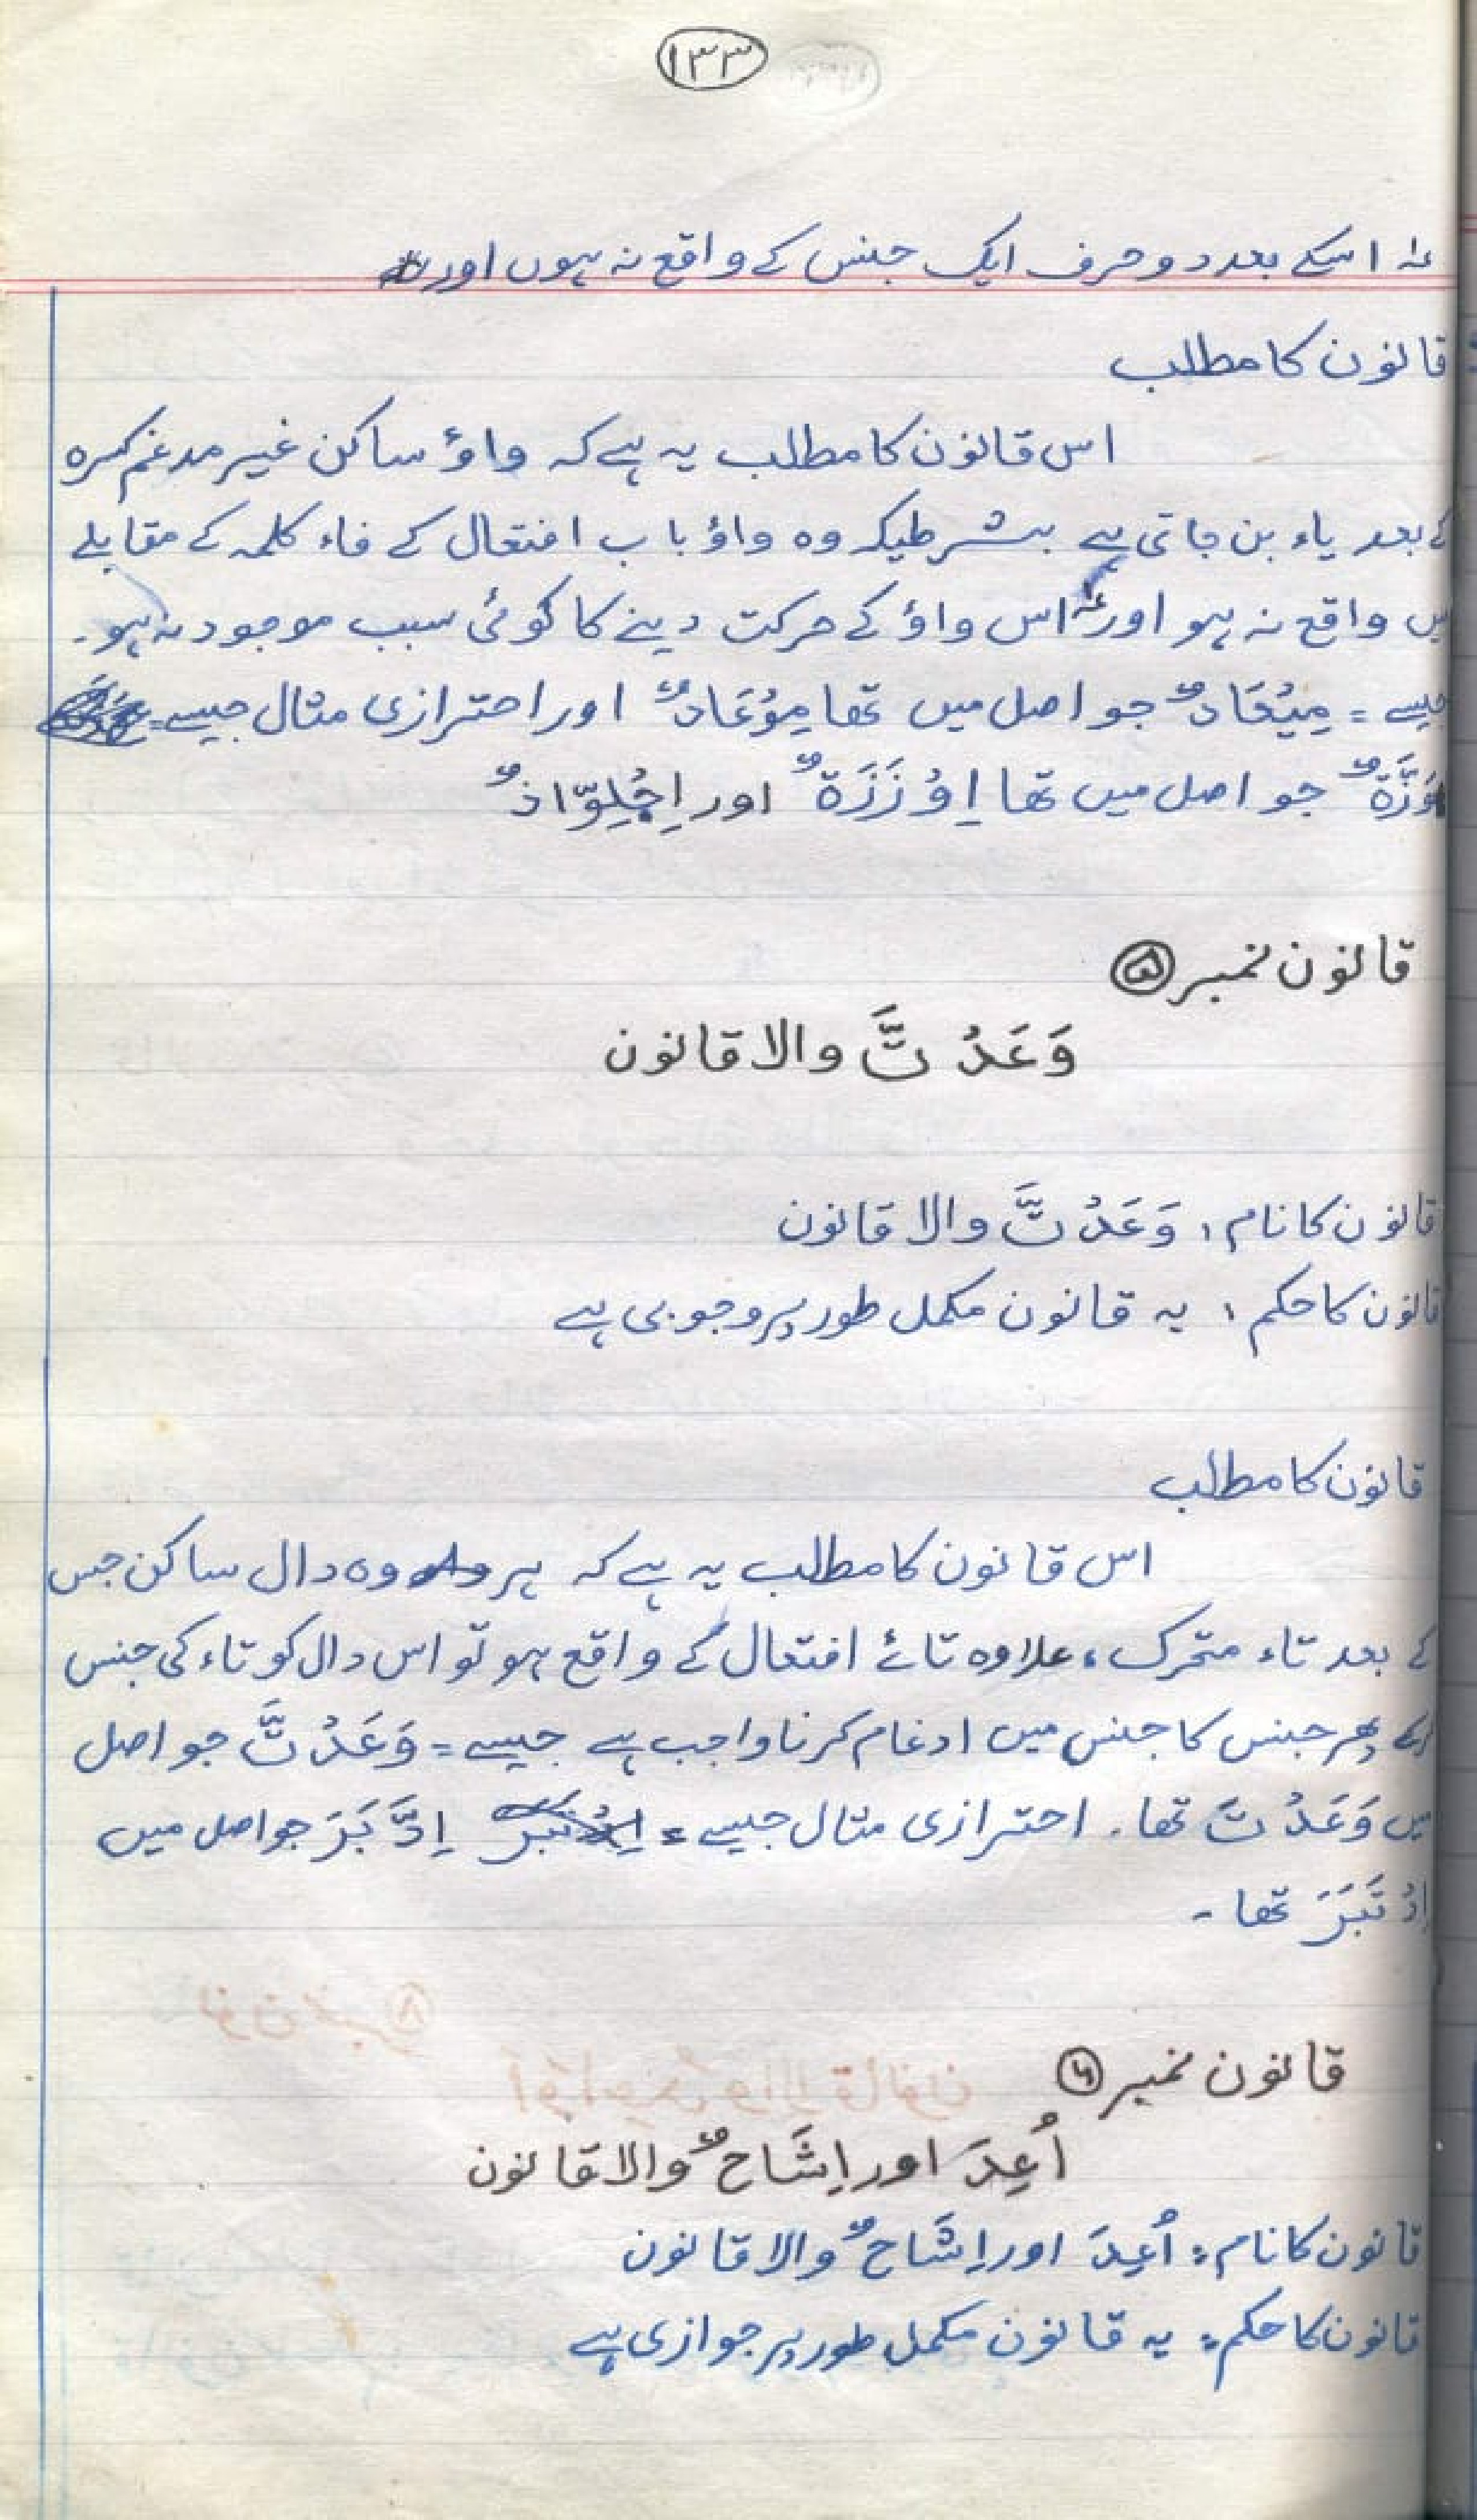 ۱۳۳
۱؎ اسکے بعد دو حرف ایک جنس کے واقع نہ ہوں اور
قانون کا مطلب
اس قانون کا مطلب یہ ہے کہ واؤ ساکن غیر مدغم کسرہ
کے بعد یاء بن جاتی ہے بشرطیکہ وہ واؤ باب افتعال کے فاء کلمہ کے مقابلے
میں واقع نہ ہو اور ۱؎ اس واؤ کے حرکت دینے کا کوئی سبب موجود نہ ہو۔
جیسے = مِیْعَادٌ جو اصل میں تھا مِوْعَادٌ اور احترازی مثال جیسے =
اِوَزَّةٌ جو اصل میں تھا اِوْزَزَةٌ اور اِجْلِوَّاذٌ
قانون نمبر ⑤
وَعَدْتَّ والا قانون
قانون کا نام : وَعَدْتَّ والا قانون
قانون کا حکم : یہ قانون مکمل طور پر وجوبی ہے
قانون کا مطلب
اس قانون کا مطلب یہ ہے کہ ہر وہ دال ساکن جس
کے بعد تاء متحرک، علاوہ تائے افتعال کے واقع ہو تو اس دال کو تاء کی جنس
کرکے پھر جنس کا جنس میں ادغام کرنا واجب ہے جیسے = وَعَدْتَّ جو اصل
میں وَعَدْتَ تھا۔ احترازی مثال جیسے = اِدَّبَرَ جو اصل میں
اِدْتَبَرَ تھا -
قانون نمبر ⑥
اُعِدَ اور اِشَاحٌ والا قانون
قانون کا نام : اُعِدَ اور اِشَاحٌ والا قانون
قانون کا حکم : یہ قانون مکمل طور پر جوازی ہے